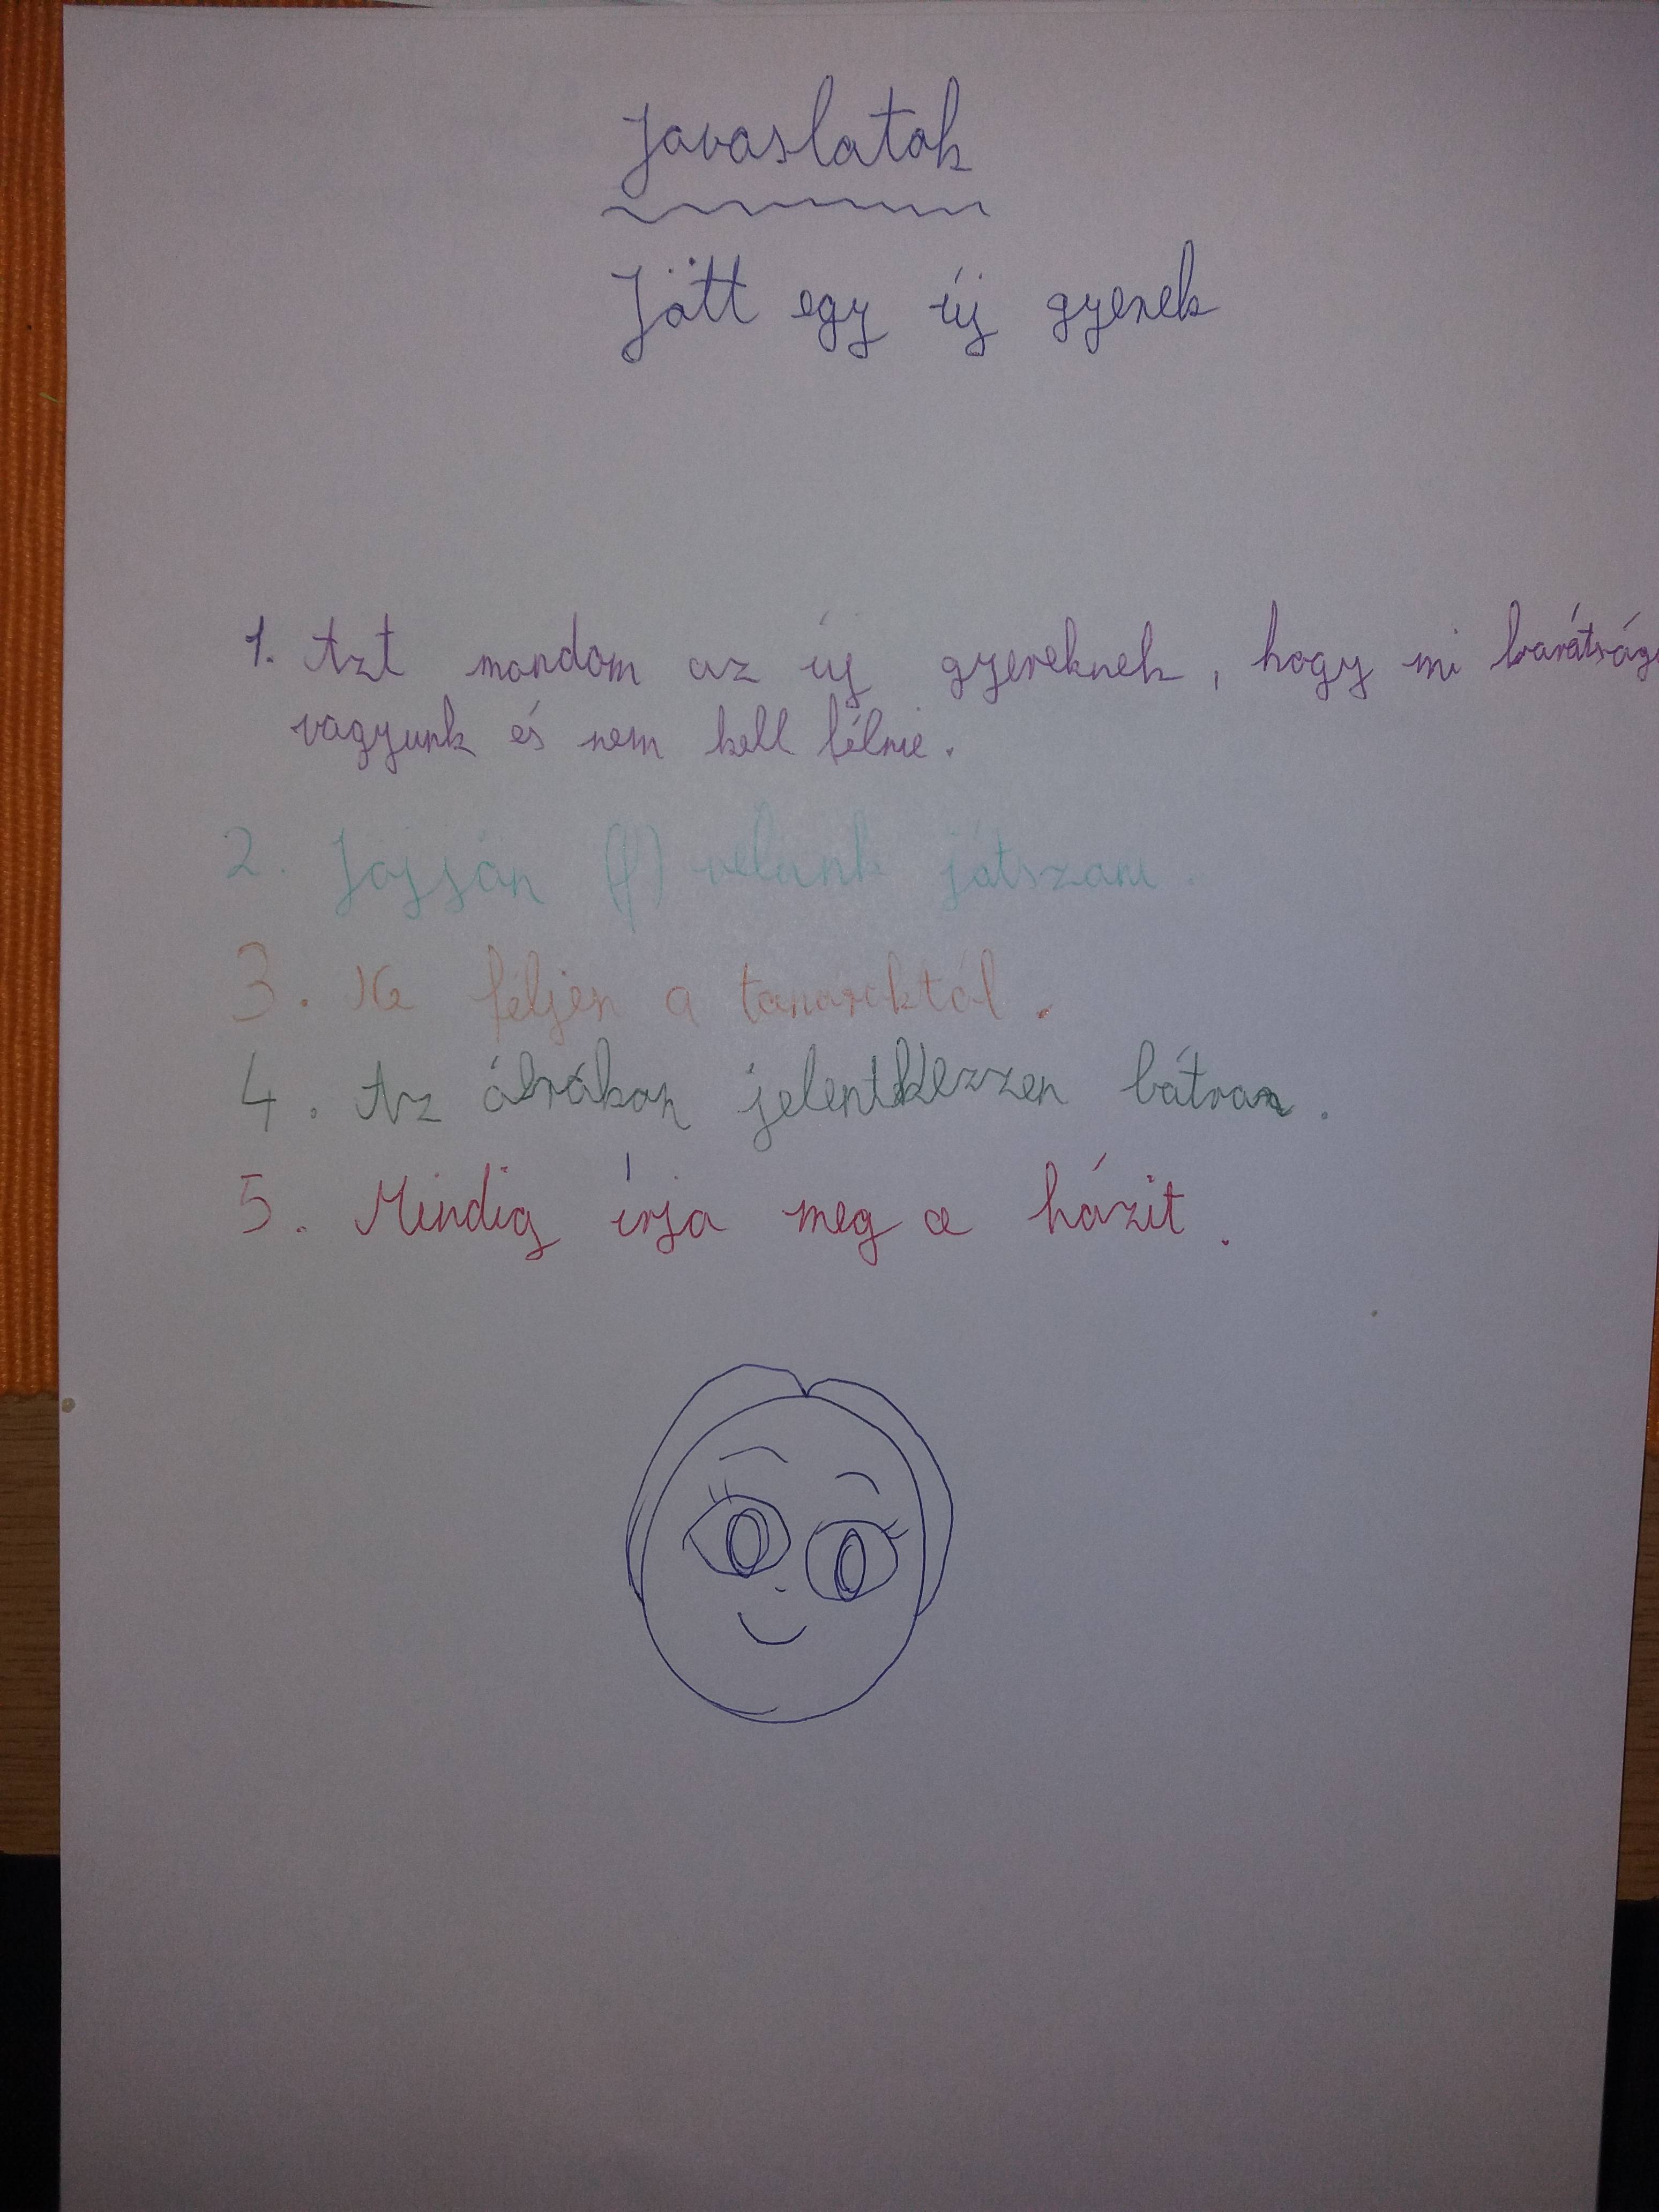 Javaslatok
Jött egy új gyerek
1. Azt mondom az új gyereknek, hogy mi barátság
vagyunk és nem kell félnie.
2. Jöjjön velünk játszani.
3. Ne féljen a tanároktól.
4. Az órákon jelentkezzen bátran.
5. Mindig írja meg a házit.